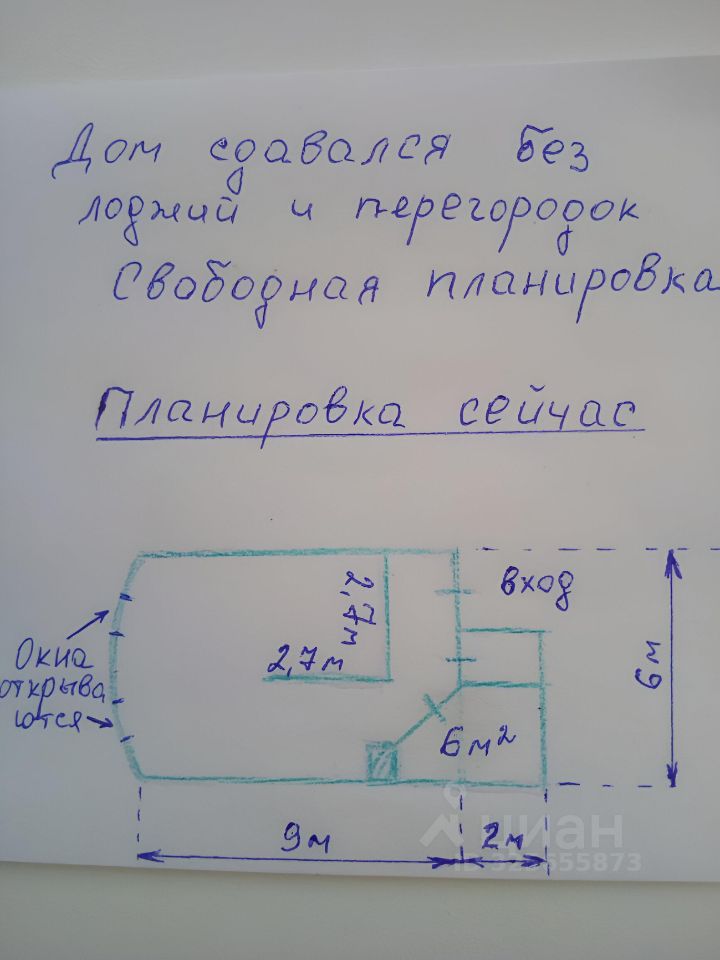 Дом сдавался без
лоджий и перегородок
Свободная планировка
Планировка сейчас
вход
2,7м
2,7м
Окна
открыва
ются
6м
6м²
9м
2м
циан